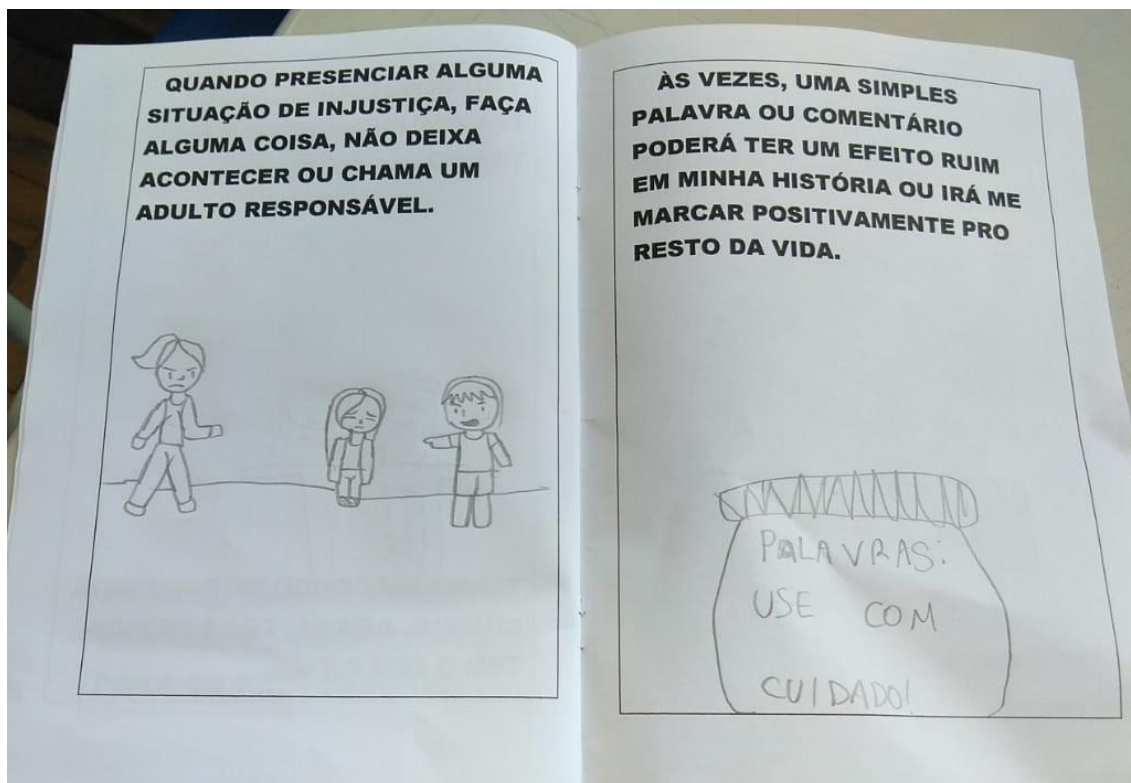 QUANDO PRESENCIAR ALGUMA
SITUAÇÃO DE INJUSTIÇA, FAÇA
ALGUMA COISA, NÃO DEIXA
ACONTECER OU CHAMA UM
ADULTO RESPONSÁVEL.
ÀS VEZES, UMA SIMPLES
PALAVRA OU COMENTÁRIO
PODERÁ TER UM EFEITO RUIM
EM MINHA HISTÓRIA OU IRÁ ME
MARCAR POSITIVAMENTE PRO
RESTO DA VIDA.
PALAVRAS:
USE COM
CUIDADO!